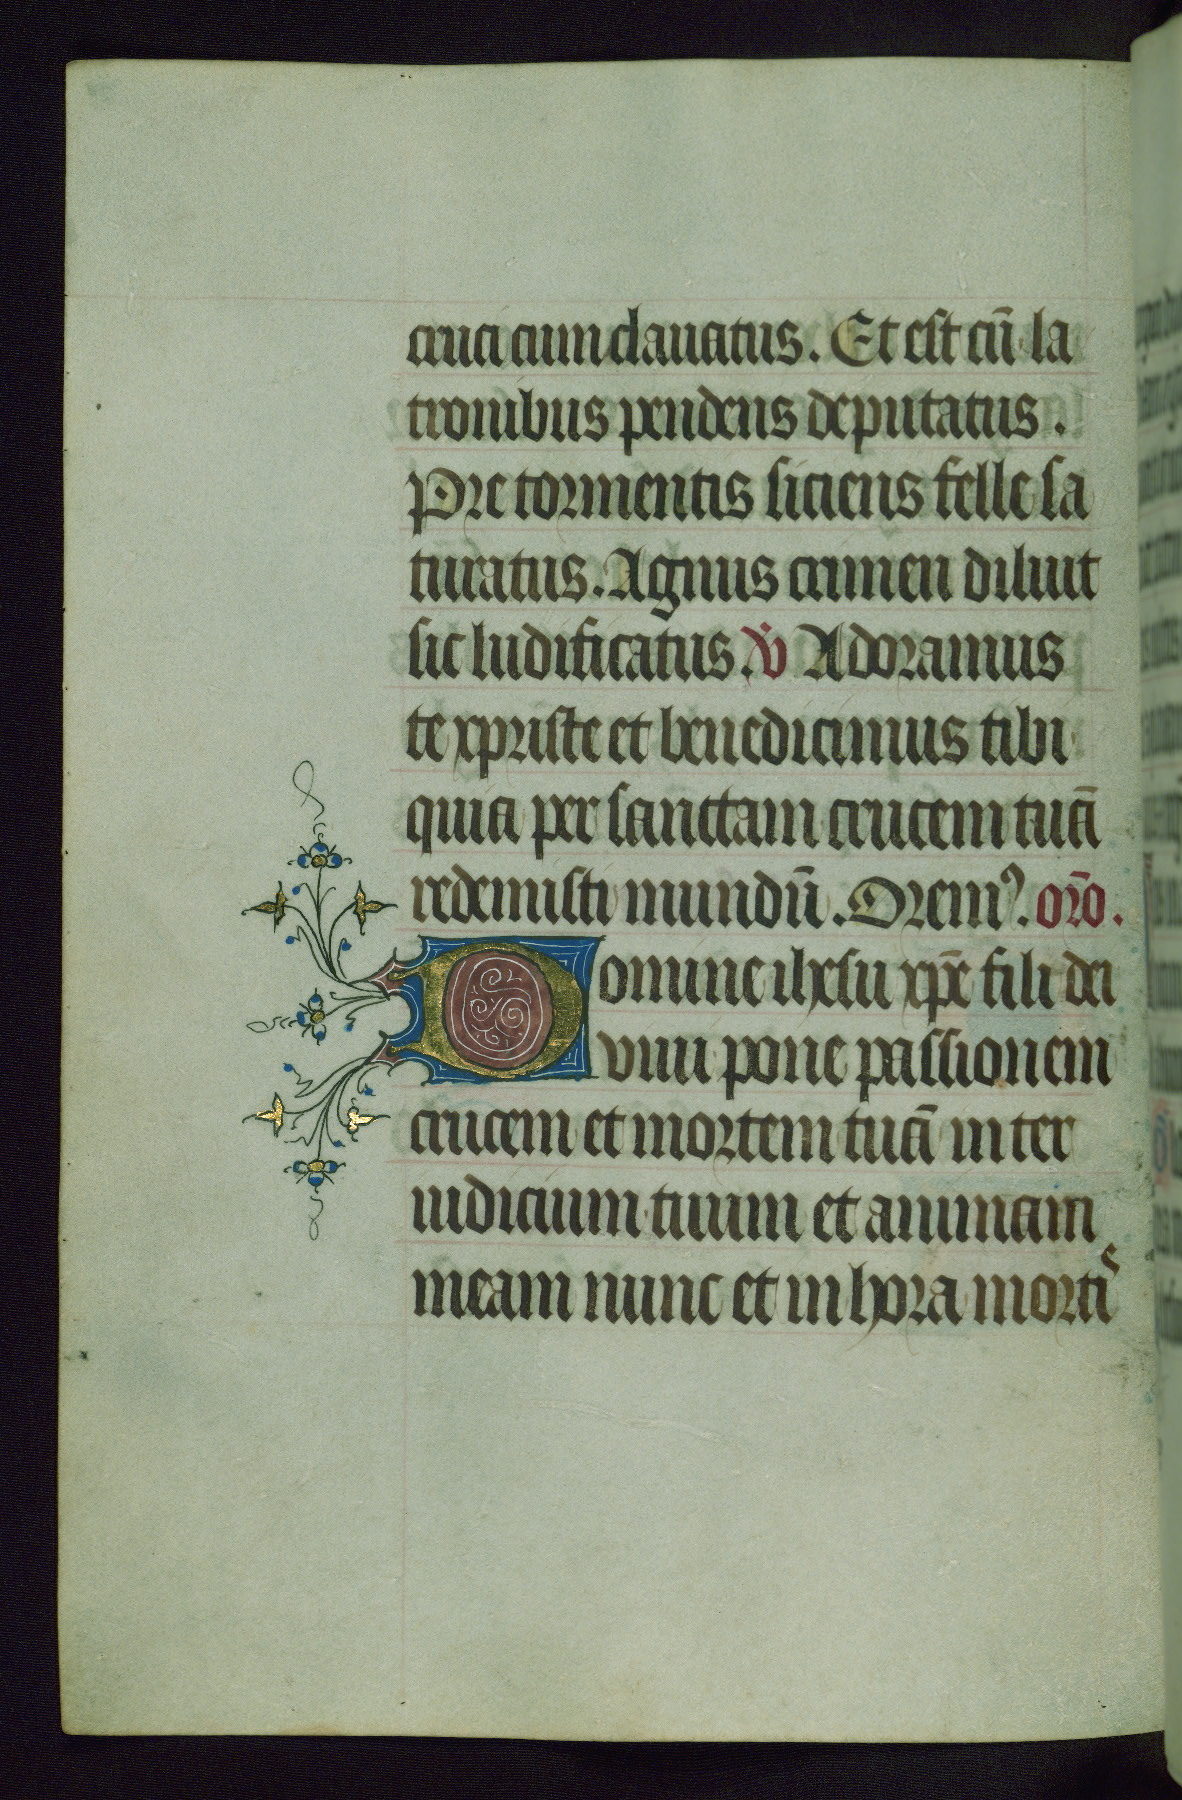 cruci cum clauatus. Et est cū la
tronibus pendens deputatus.
Pre tormentis siciens felle sa
turatus. Agnus crimen diluit
sic ludificatus. ℣ Adoramus
te xpriste et benedicimus tibi
quia per sanctam crucem tuā
redemisti mundū. Oremꝰ. orō.
Domine ihesu xp̄e fili dei
viui pone passionem
crucem et mortem tuā inter
iudicium tuum et animam
meam nunc et in hora mortis